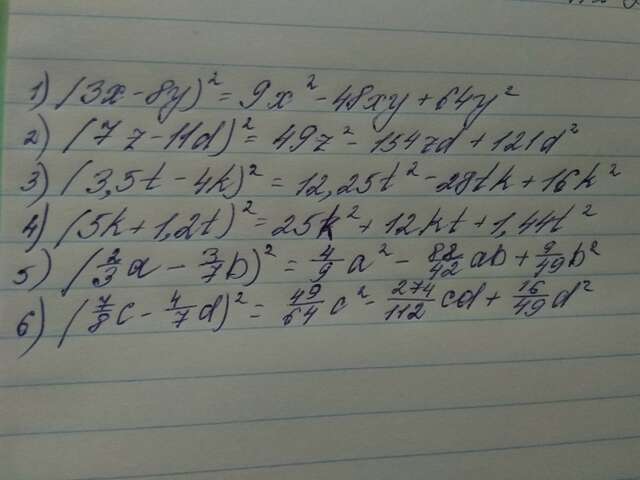 1) (3x - 8y)² = 9x² - 48xy + 64y²
2) (7z - 11d)² = 49z² - 154zd + 121d²
3) (3,5t - 4k)² = 12,25t² - 28tk + 16k²
4) (5k + 1,2t)² = 25k² + 12kt + 1,44t²
5) (2/3a - 3/7b)² = 4/9a² - 88/42ab + 9/49b²
6) (7/8c - 4/7d)² = 49/64c² - 274/112cd + 16/49d²